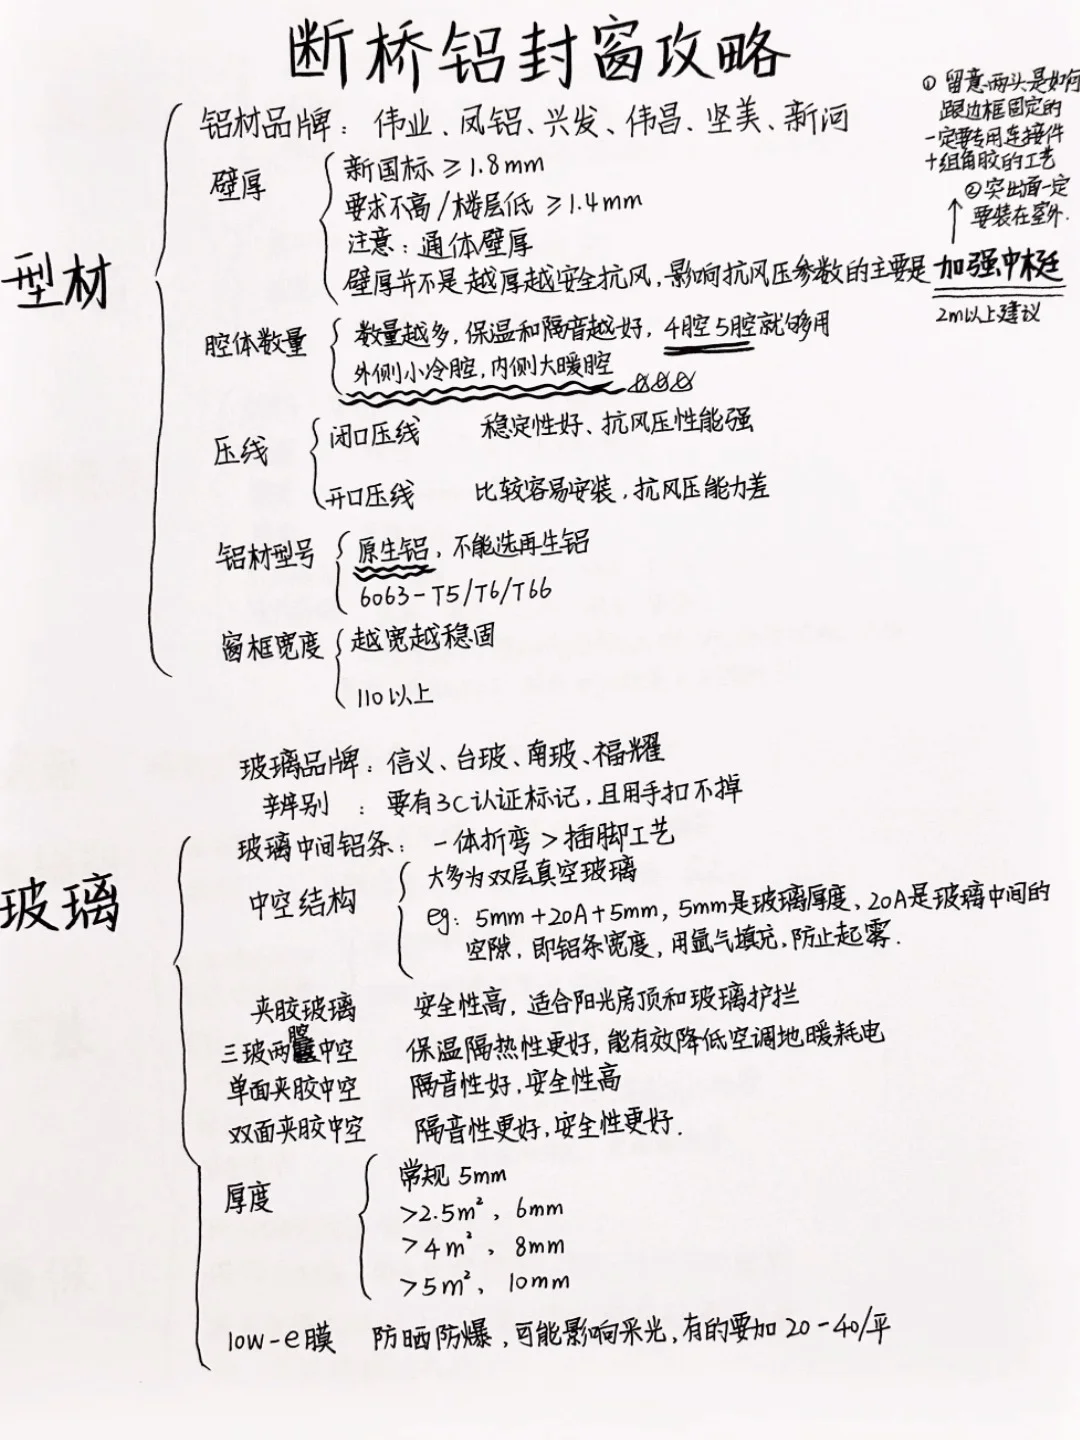 断桥铝封窗攻略
① 留意两头是如何
跟边框固定的
一定要专用连接件
+组角胶的工艺
② 突出面一定
要装在室外.
型材
铝材品牌：伟业、凤铝、兴发、伟昌、坚美、新河
壁厚
新国标 ≥1.8mm
要求不高/楼层低 ≥1.4mm
注意：通体壁厚
壁厚并不是越厚越安全抗风，影响抗风压参数的主要是 加强中梃
2m以上建议
腔体数量
数量越多，保温和隔音越好，4腔5腔就够用
外侧小冷腔，内侧大暖腔
压线
闭口压线 稳定性好、抗风压性能强
开口压线 比较容易安装，抗风压能力差
铝材型号
原生铝，不能选再生铝
6063-T5/T6/T66
窗框宽度
越宽越稳固
110以上
玻璃
玻璃品牌：信义、台玻、南玻、福耀
辨别：要有3C认证标记，且用手扣不掉
玻璃中间铝条：一体折弯>插脚工艺
中空结构
大多为双层真空玻璃
eg：5mm+20A+5mm，5mm是玻璃厚度，20A是玻璃中间的
空隙，即铝条宽度，用氩气填充，防止起雾.
夹胶玻璃 安全性高，适合阳光房顶和玻璃护拦
三玻两腔中空 保温隔热性更好，能有效降低空调地暖耗电
单面夹胶中空 隔音性好，安全性高
双面夹胶中空 隔音性更好，安全性更好.
厚度
常规 5mm
>2.5m²，6mm
>4m²，8mm
>5m²，10mm
low-e膜 防晒防爆，可能影响采光，有的要加20-40/平